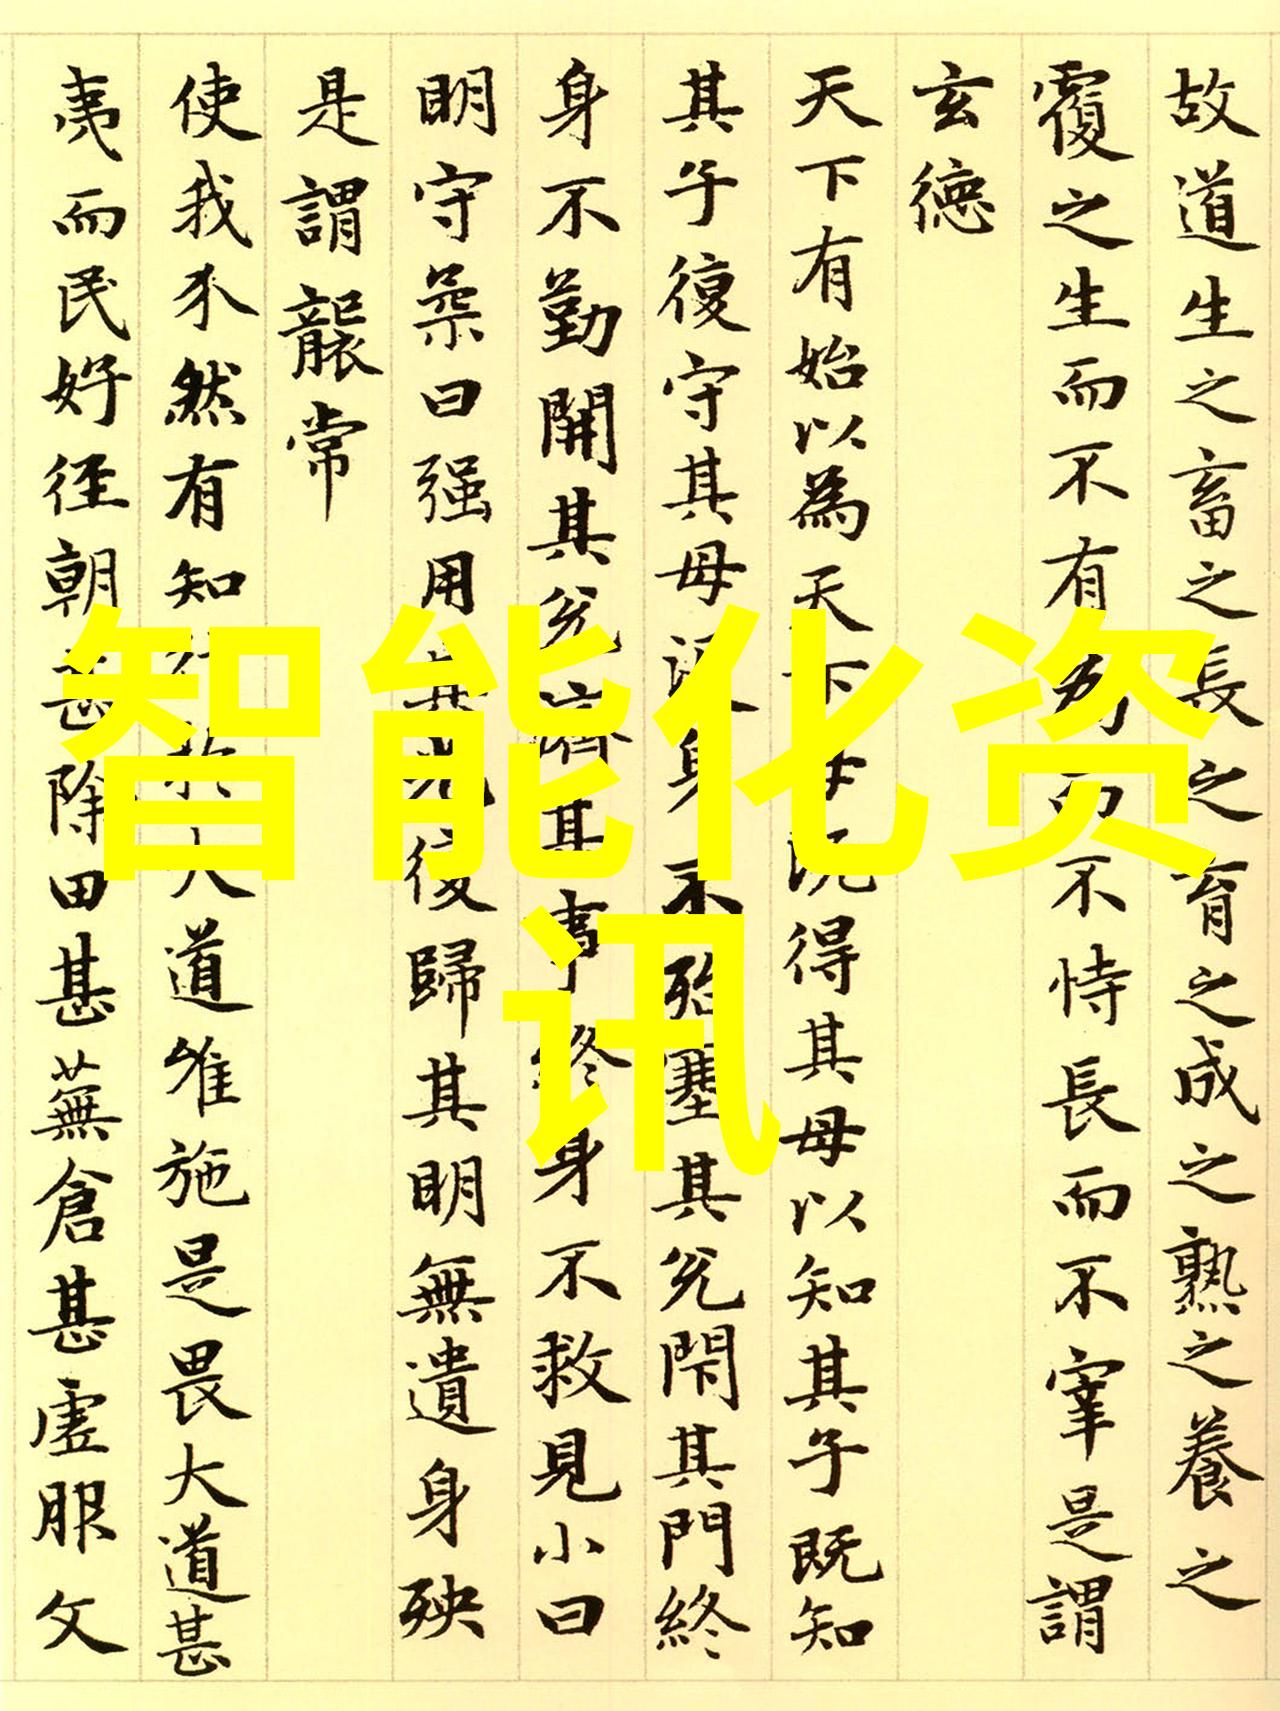 故道生之畜之長之育之成之熟之養之
覆之生而不有為而不恃長而不宰是謂
玄德
天下有始以為天下母既得其母以知其子既知
其子復守其母沒身不殆塞其兌閇其門終
身不勤開其兌濟其事終身不救見小曰
明守柔曰强用其光復歸其明無遺身殃
是謂襲常
使我介然有知行於大道唯施是畏大道甚
夷而民好徑朝甚除田甚蕪倉甚虛服文
智能化资
讯